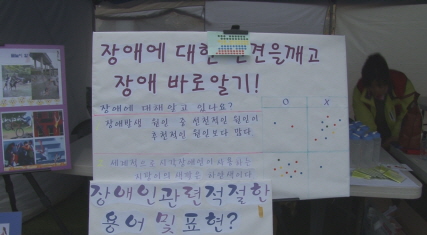 장애에 대한 편견을깨고
장애 바로알기!
장애에 대해 알고 있나요?
O X
장애발생 원인 중 선천적인 원인이
후천적인 원인보다 많다
세계적으로 시각장애인이 사용하는
지팡이의 색깔은
장애인관련적절한
용어 및 표현?